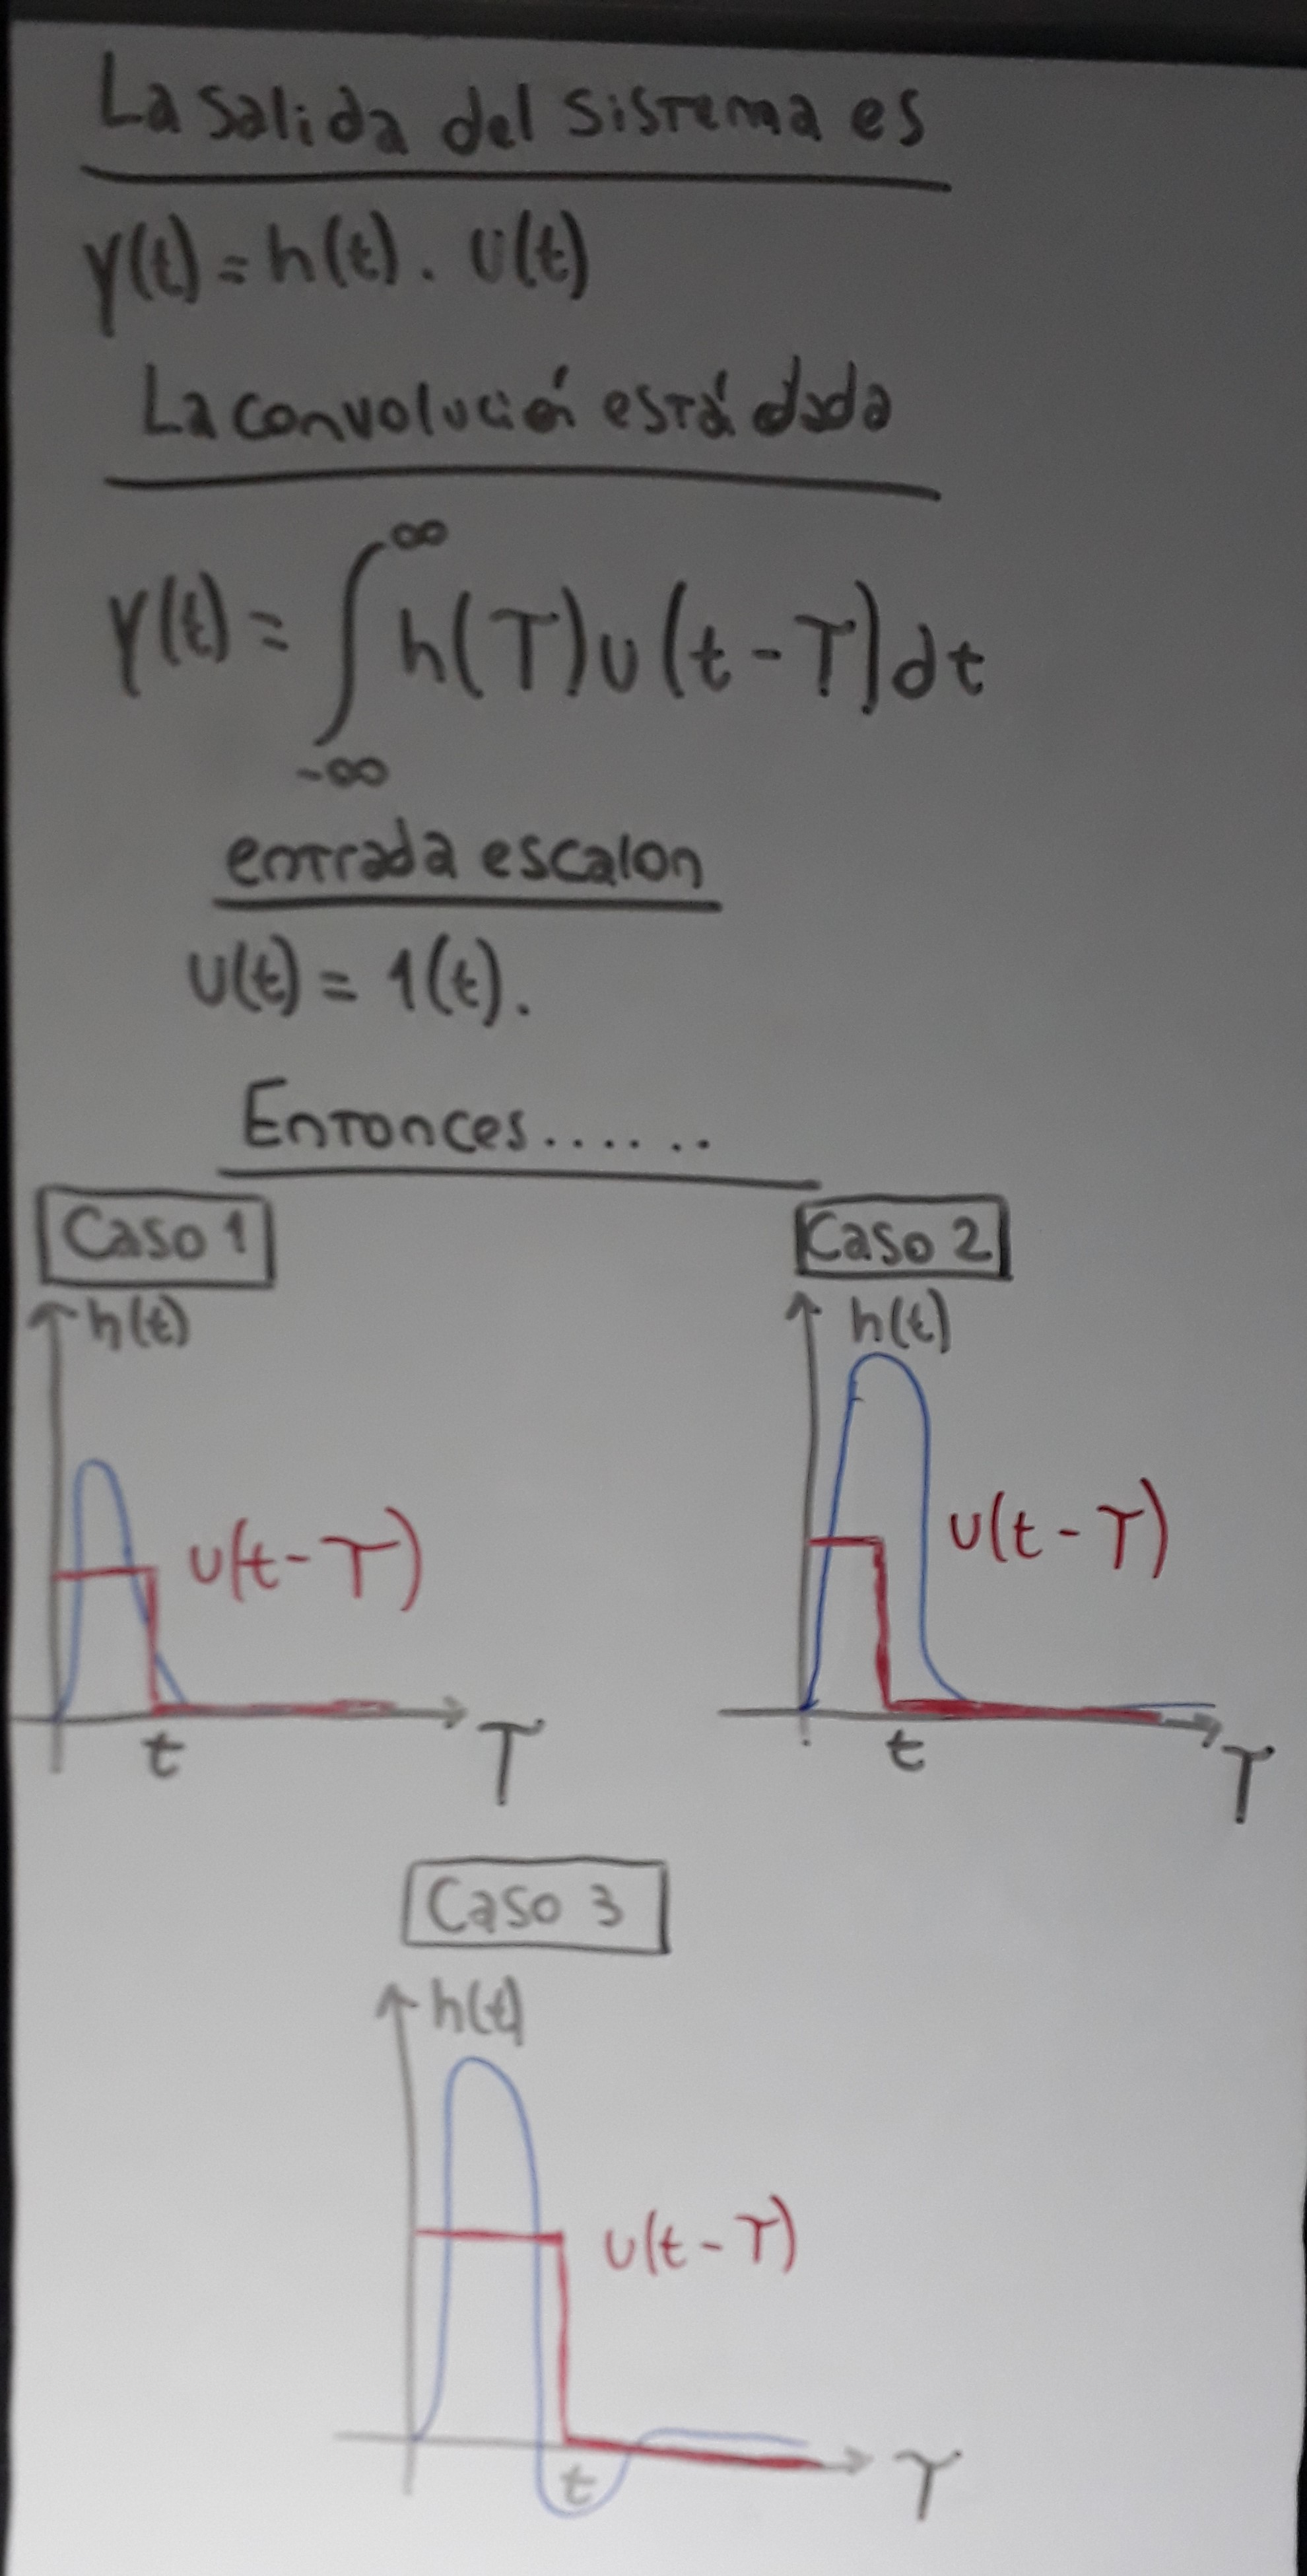 La salida del sistema es
y(t) = h(t) . U(t)
La convolución está dada
y(t) = ∫_{-∞}^{∞} h(T)U(t-T)dt
entrada escalon
U(t) = 1(t).
Entonces......
Caso 1
h(t)
U(t-T)
t
T
Caso 2
h(t)
U(t-T)
t
T
Caso 3
h(t)
U(t-T)
t
T